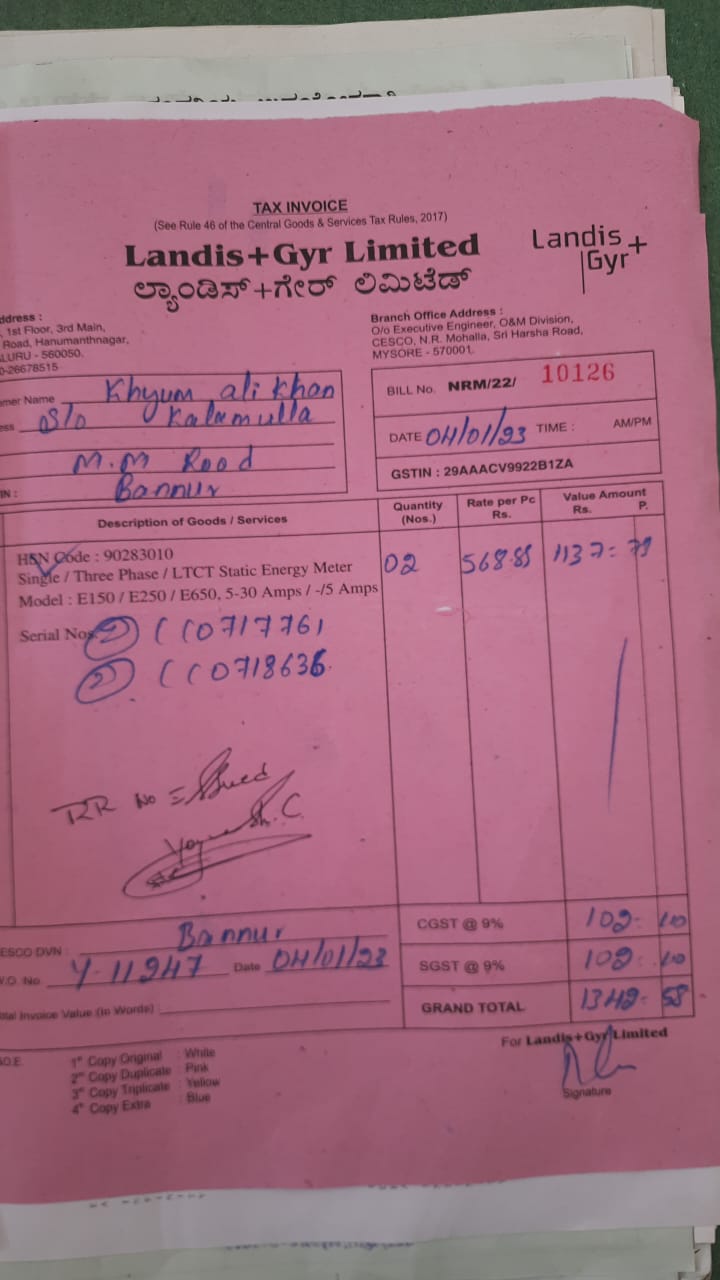 TAX INVOICE
(See Rule 46 of the Central Goods & Services Tax Rules, 2017)
Landis+Gyr Limited
ಲ್ಯಾಂಡಿಸ್+ಗೇರ್ ಲಿಮಿಟೆಡ್
Landis+
Gyr
ddress :
, 1st Floor, 3rd Main,
Road, Hanumanthnagar,
LURU - 560050.
0-26678515
Branch Office Address :
O/o Executive Engineer, O&M Division,
CESCO, N.R. Mohalla, Sri Harsha Road,
MYSORE - 570001.
omer Name Khyum ali khan
ess S/o Kalamulla
M.M Rood
IN : Bannur
BILL No. NRM/22/ 10126
DATE 04/01/23 TIME : AM/PM
GSTIN : 29AAACV9922B1ZA
Description of Goods / Services Quantity (Nos.) Rate per Pc Rs. Value Amount Rs. P.
HSN Code : 90283010
Single / Three Phase / LTCT Static Energy Meter 02 568.85 1137=79
Model : E150 / E250 / E650, 5-30 Amps / -/5 Amps
Serial Nos. CC0717761
CC0718636.
RR No =
CGST @ 9% 102- 40
ESCO DVN : Bannur
SGST @ 9% 102- 40
W.O. No Y-11247 Date 04/01/23
GRAND TOTAL 1342- 58
otal Invoice Value (in Words) :
For Landis+Gyr Limited
Signature
N.O.E.
1st Copy Original : White
2nd Copy Duplicate : Pink
3rd Copy Triplicate : Yellow
4th Copy Extra : Blue